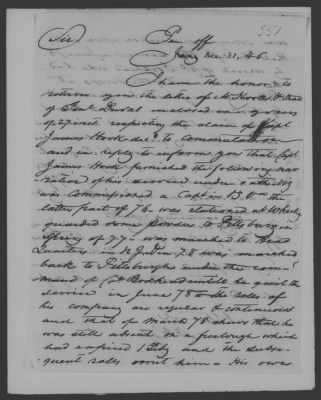 551
Sir Pen off
Jany Dec 31, 46
I have the honor to
return you the letter of Mr Hook & that
of Genl Duval inclosed in yours
of respecting the claim of Capt
James Hook decd to Commutation
and in reply to inform you that Capt
James Hook furnished the following nar
ration of his services under oath
was commissioned a Captain 13 Va the
latter part of 76 was stationed at Wheel
guarded some powder to Pittsburg in
Spring of 77 was marched to Head
Quarters in 78 was marched
back to Pittsburgh under the com
mand of Col Brodhead until he quit the
service in June 78 the Rolls of
his company are regular & continuous
and that of March 78 shows that he
was still absent on a furlough which
had expired 1 Feby and the subse-
quent rolls omit him - His own